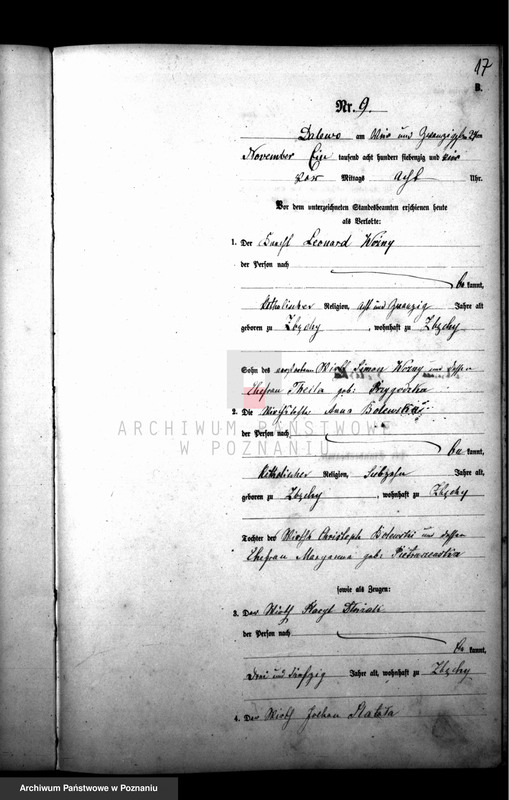 17
B.
Nr. 9.
Dalewo am Vier und Zwanzigsten
November Ein tausend acht hundert siebenzig und vier
Vor Mittags acht Uhr.
Vor dem unterzeichneten Standesbeamten erschienen heute
als Verlobte:
1. Der Knecht Leonard Woźny
der Person nach
be kannt,
katholischer Religion, acht und Zwanzig Jahre alt
geboren zu Zbęchy, wohnhaft zu Zbęchy
Sohn des verstorbenen Wirth Simon Woźny und dessen
Ehefrau Thecla geb:
2. Die Wirthstochter Anna
der Person nach
be kannt,
katholischer Religion, Siebzehn Jahre alt,
geboren zu Zbęchy, wohnhaft zu Zbęchy
Tochter des Wirths Christoph und dessen
Ehefrau Maryanna geb:
sowie als Zeugen:
3. Der Wirth
der Person nach
be kannt,
drei und fünfzig Jahre alt, wohnhaft zu Zbęchy
4. Der Wirth Johan Ratata
ARCHIWUM PAŃSTWOWE
W POZNANIU
Archiwum Państwowe w Poznaniu